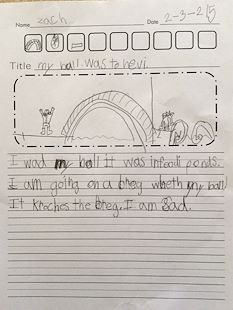 Name zach Date 2-3-215
Title my ball was to hevi.
I wad my ball it was infoodi ponds.
I am going on a breg wheth my ball
It kraches the breg. I am Sad.